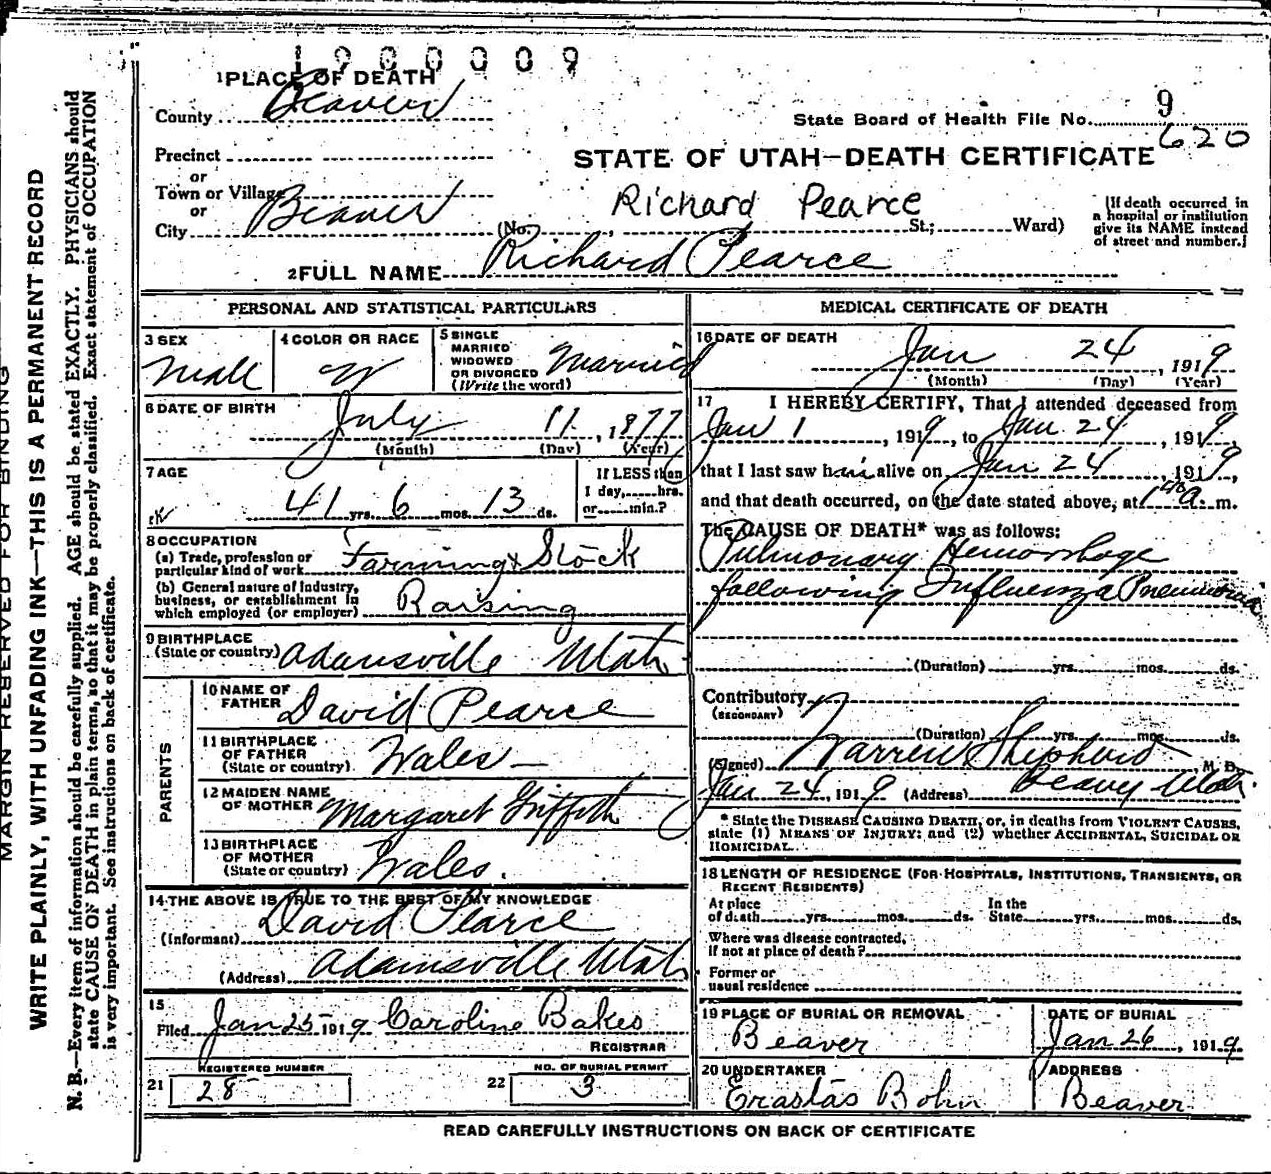 1900009
1 PLACE OF DEATH
County Beaver
State Board of Health File No. 9
620
Precinct
or
STATE OF UTAH—DEATH CERTIFICATE
Town or Village
or
City Beaver
Richard Pearce
(No. St.; Ward)
(If death occurred in
a hospital or institution
give its NAME instead
of street and number.]
2 FULL NAME Richard Pearce
PERSONAL AND STATISTICAL PARTICULARS
3 SEX
Male
4 COLOR OR RACE
W
5 SINGLE
MARRIED
WIDOWED
OR DIVORCED
(Write the word)
Married
6 DATE OF BIRTH
July 11, 1877
(Month) (Day) (Year)
7 AGE
41 yrs. 6 mos. 13 ds.
If LESS than
1 day, hrs.
or min.?
8 OCCUPATION
(a) Trade, profession or
particular kind of work Farming & Stock
(b) General nature of industry,
business, or establishment in
which employed (or employer) Raising
9 BIRTHPLACE
(State or country) Adamsville Utah
PARENTS
10 NAME OF
FATHER David Pearce
11 BIRTHPLACE
OF FATHER
(State or country) Wales
12 MAIDEN NAME
OF MOTHER Margaret Griffith
13 BIRTHPLACE
OF MOTHER
(State or country) Wales.
14 THE ABOVE IS TRUE TO THE BEST OF MY KNOWLEDGE
(Informant) David Pearce
(Address) Adamsville Utah
15
Filed Jan 25 1919 Caroline Bakes
REGISTRAR
REGISTERED NUMBER
21 28
NO. OF BURIAL PERMIT
22 3
MEDICAL CERTIFICATE OF DEATH
16 DATE OF DEATH
Jan 24, 1919
(Month) (Day) (Year)
17 I HEREBY CERTIFY, That I attended deceased from
Jan 1, 1919, to Jan 24, 1919,
that I last saw him alive on Jan 24, 1919,
and that death occurred, on the date stated above, at a. m.
The CAUSE OF DEATH* was as follows:
Pulmonary Hemorrhage
following Influenza Pneumonia
(Duration) yrs. mos. ds.
Contributory
(SECONDARY)
(Duration) yrs. mos. ds.
(Signed) Warren Shepherd M. D.
Jan 24, 1919 (Address) Beaver Utah.
* State the DISEASE CAUSING DEATH, or, in deaths from VIOLENT CAUSES,
state (1) MEANS OF INJURY; and (2) whether ACCIDENTAL, SUICIDAL OR
HOMICIDAL.
18 LENGTH OF RESIDENCE (FOR HOSPITALS, INSTITUTIONS, TRANSIENTS, OR
RECENT RESIDENTS)
At place
of death yrs. mos. ds.
In the
State yrs. mos. ds.
Where was disease contracted,
if not at place of death?
Former or
usual residence
19 PLACE OF BURIAL OR REMOVAL
Beaver
DATE OF BURIAL
Jan 26, 1919.
20 UNDERTAKER
Erastas Bohn
ADDRESS
Beaver
READ CAREFULLY INSTRUCTIONS ON BACK OF CERTIFICATE
MARGIN RESERVED FOR BINDING
WRITE PLAINLY, WITH UNFADING INK—THIS IS A PERMANENT RECORD
N. B.—Every item of information should be carefully supplied. AGE should be stated EXACTLY. PHYSICIANS should
state CAUSE OF DEATH in plain terms, so that it may be properly classified. Exact statement of OCCUPATION
is very important. See instructions on back of certificate.